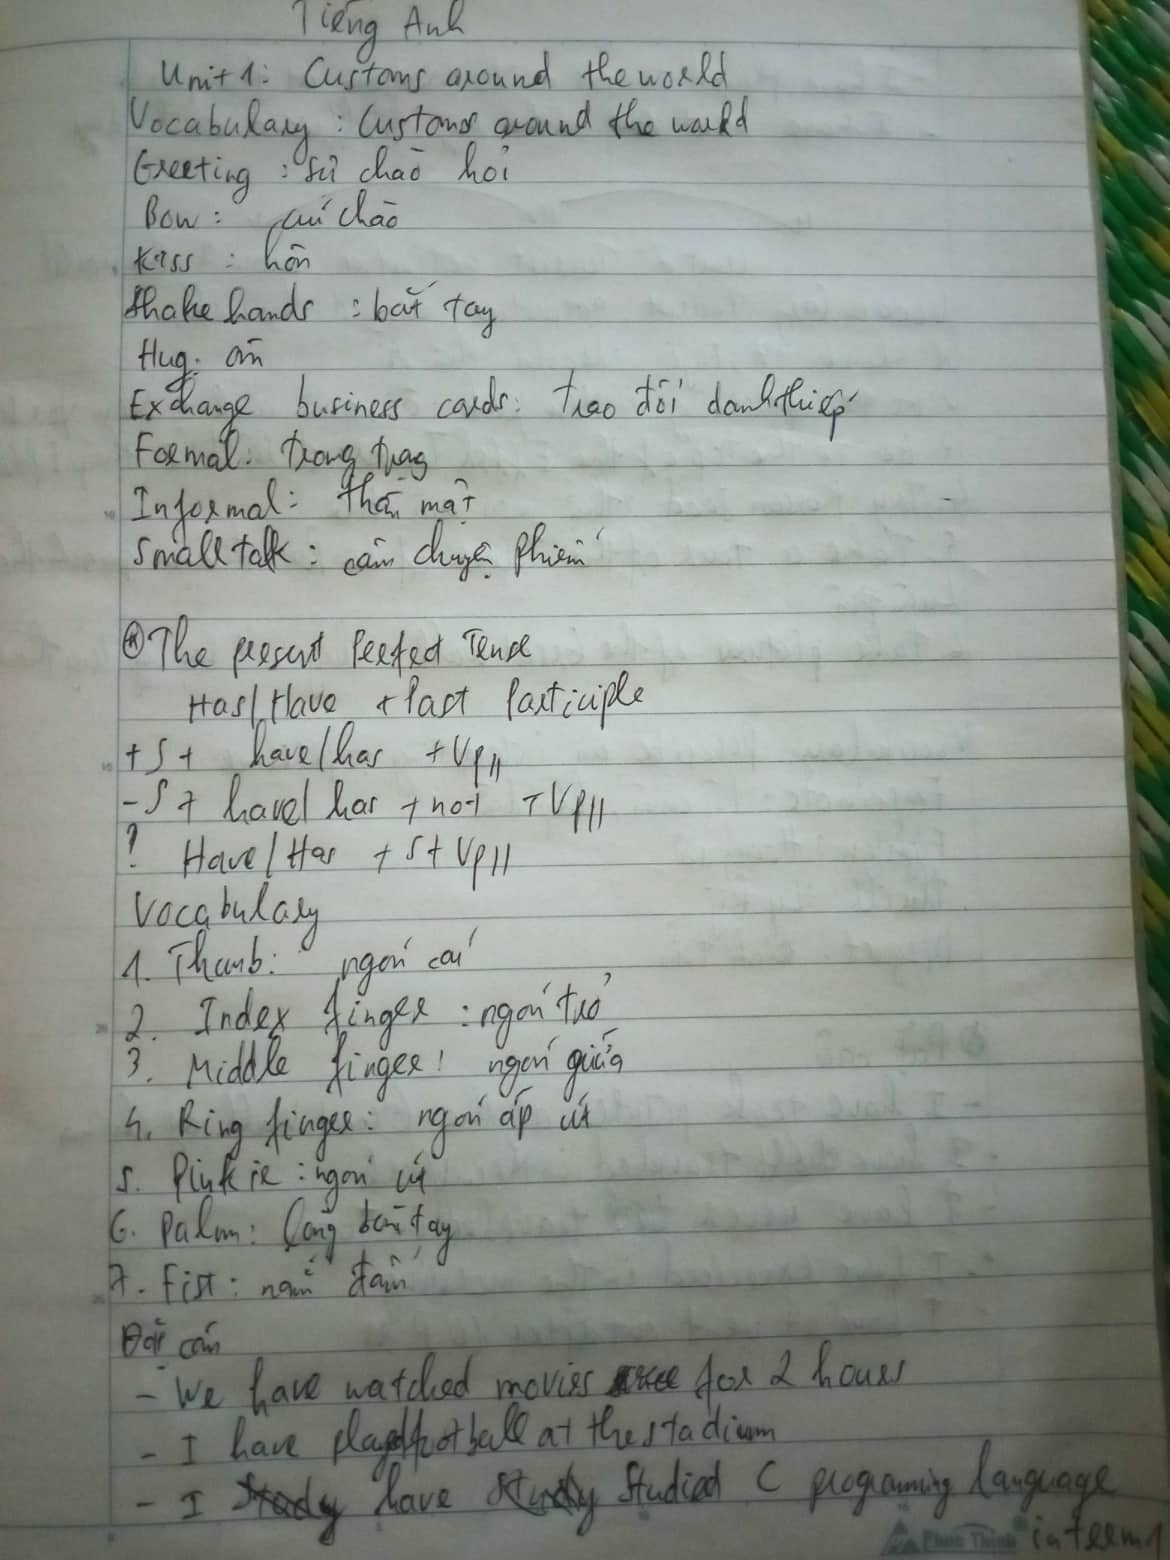 Tiếng Anh
Unit 1: Customs around the world
Vocabulary: Customs around the world
Greeting: sự chào hỏi
Bow: cúi chào
Kiss: hôn
Shake hands: bắt tay
Hug: ôm
Exchange business cards: trao đổi danh thiếp
Formal: trong trạng
Informal: thân mật
Small talk: cám chuyện phiếm
* The present Perfect Tense
Has/Have + Past Participle
+ S + have/has + VpII
- S + have/has + not + VpII
? Have/Has + S + VpII
Vocabulary
1. Thumb: ngón cái
2. Index finger: ngón trỏ
3. Middle finger: ngón giữa
4. Ring finger: ngón áp út
5. Pinkie: ngón út
6. Palm: lòng bàn tay
7. Fist: nắm đấm
Đặt câu
- We have watched movies for 2 hours
- I have played football at the stadium
- I have studied C programing language
in term 1